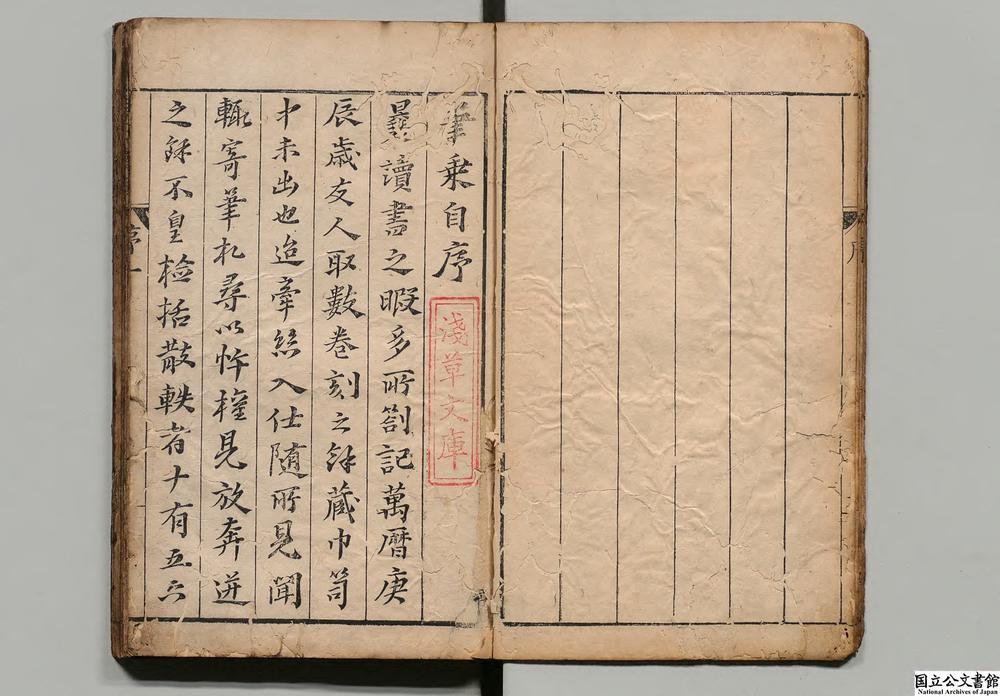 序
筆乘自序
淺草文庫
曩讀書之暇多所劄記萬曆庚
辰歲友人取數卷刻之餘藏巾笥
中未出也迨牽絲入仕隨所見聞
輒寄筆札尋以忤權見放奔迸
之餘不皇檢括散軼者十有五六
序一
国立公文書館
National Archives of Japan